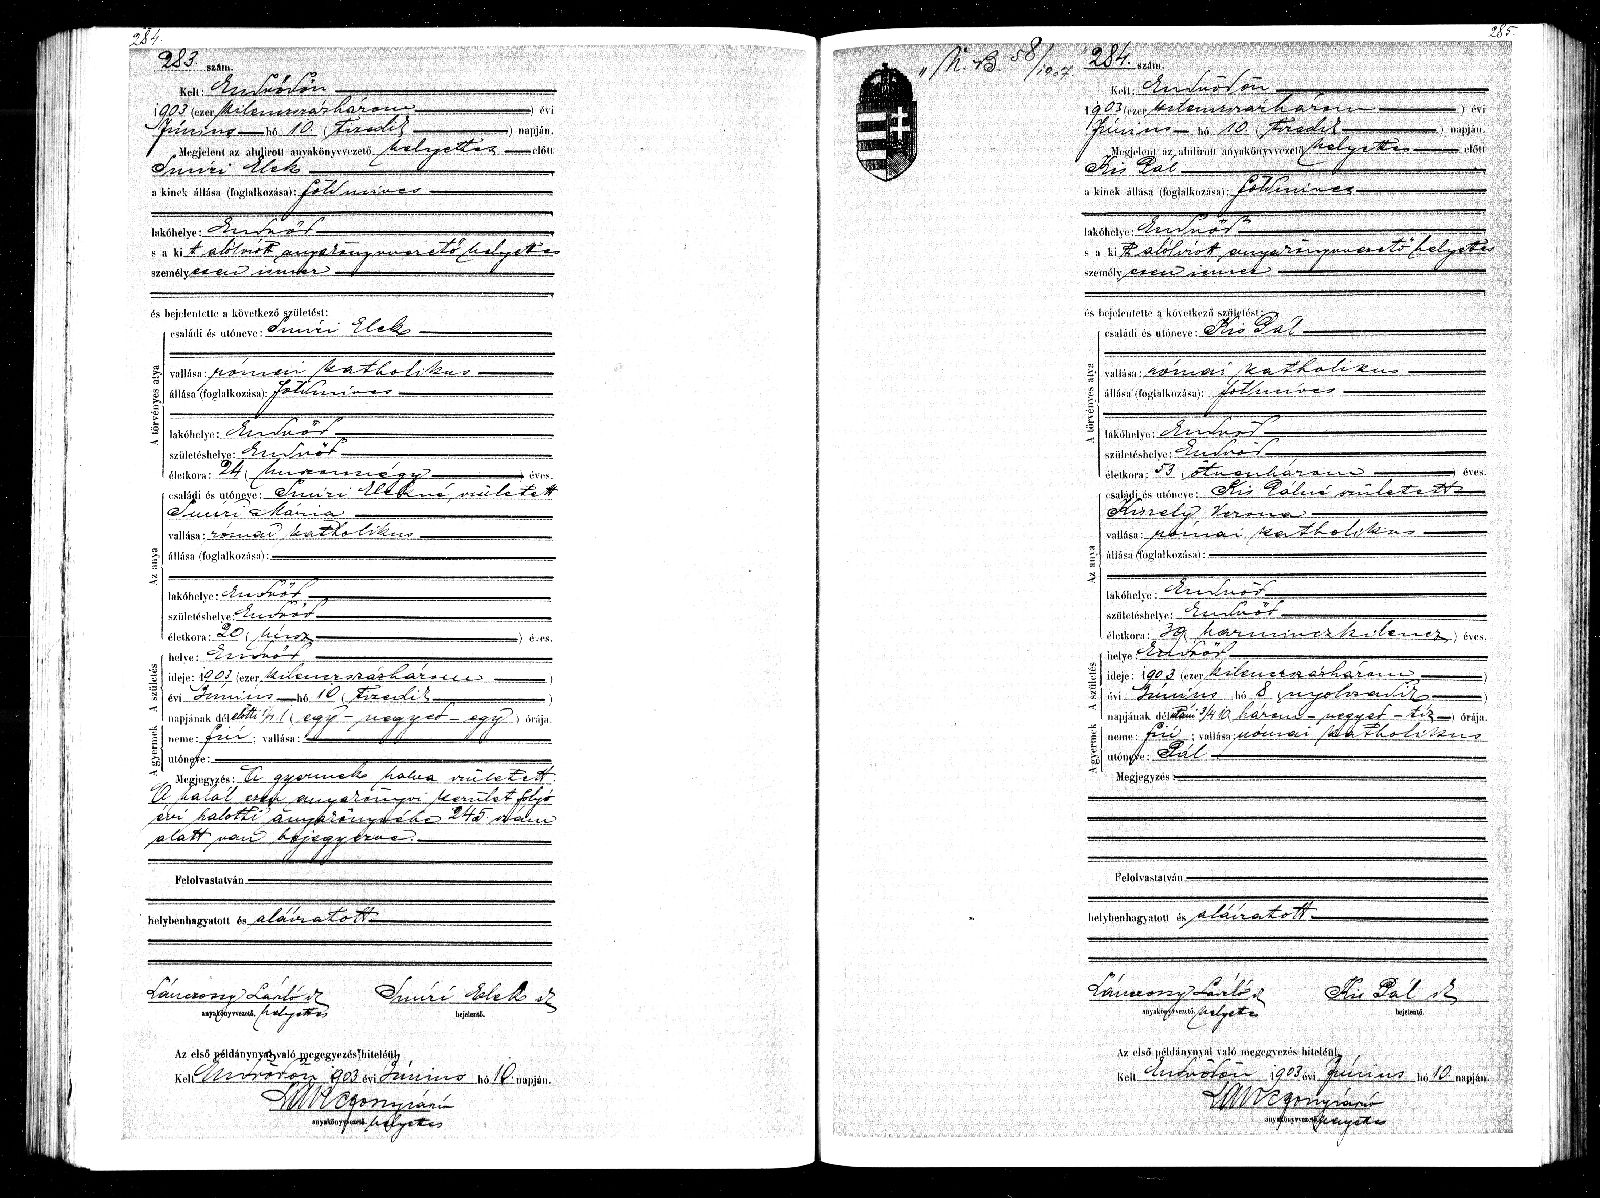 284.
283. szám.
Kelt: Endrődön
1903 (ezer kilenczszázhárom) évi
Június hó 10. (tizedik) napján.
Megjelent az alulirott anyakönyvvezető helyettes előtt
Smiri Elek
a kinek állása (foglalkozása): földmives
lakóhelye: Endrőd
s a ki t alólirott anyakönyvvezető helyettes
személyesen ismer
és bejelentette a következő születést:
A törvényes atya
családi és utóneve: Smiri Elek
vallása: római katholikus
állása (foglalkozása): földmives
lakóhelye: Endrőd
születéshelye: Endrőd
életkora: 24 (huszonnégy) éves.
Az anya
családi és utóneve: Smiri Elekné született
Smiri Mária
vallása: római katholikus
állása (foglalkozása):
lakóhelye: Endrőd
születéshelye: Endrőd
életkora: 20 (húsz) éves.
A születés
helye: Endrőd
ideje: 1903 (ezer kilenczszázhárom)
évi Június hó 10 (tizedik)
napjának délelőtti ¼1 (egy-negyed-egy) órája.
A gyermek
neme: fiú; vallása:
utóneve:
Megjegyzés: A gyermek halva született.
A halál ezen anyakönyvi kerület folyó
évi halotti anyakönyvébe 245 szám
alatt van bejegyezve.
Felolvastatván
helybenhagyatott és aláiratott
Smiri Elek sk
anyakönyvvezető. helyettes
bejelentő.
Az első példánynyal való megegyezés hiteléül
Kelt Endrődön 1903 évi Június hó 10. napján.
anyakönyvvezető. helyettes
285.
58/1907
284. szám.
Kelt: Endrődön
1903 (ezer kilenczszázhárom) évi
Június hó 10. (tizedik) napján.
Megjelent az alulirott anyakönyvvezető helyettes előtt
Kis Pál
a kinek állása (foglalkozása): földmives
lakóhelye: Endrőd
s a ki t alólirott anyakönyvvezető helyettes
személyesen ismer
és bejelentette a következő születést:
A törvényes atya
családi és utóneve: Kis Pál
vallása: római katholikus
állása (foglalkozása): földmives
lakóhelye: Endrőd
születéshelye: Endrőd
életkora: 53 (ötvenhárom) éves.
Az anya
családi és utóneve: Kis Pálné született
Kiszely Verona
vallása: római katholikus
állása (foglalkozása):
lakóhelye: Endrőd
születéshelye: Endrőd
életkora: 39 (harminczkilencz) éves.
A születés
helye: Endrőd
ideje: 1903 (ezer kilenczszázhárom)
évi Június hó 8 (nyolczadik)
napjának déletáni ¾10 (három-negyed-tiz) órája.
A gyermek
neme: fiú; vallása: római katholikus
utóneve: Pál
Megjegyzés:
Felolvastatván
helybenhagyatott és aláiratott
Kis Pál sk
anyakönyvvezető. helyettes
bejelentő.
Az első példánynyal való megegyezés hiteléül
Kelt Endrődön 1903 évi Június hó 10 napján.
anyakönyvvezető. helyettes